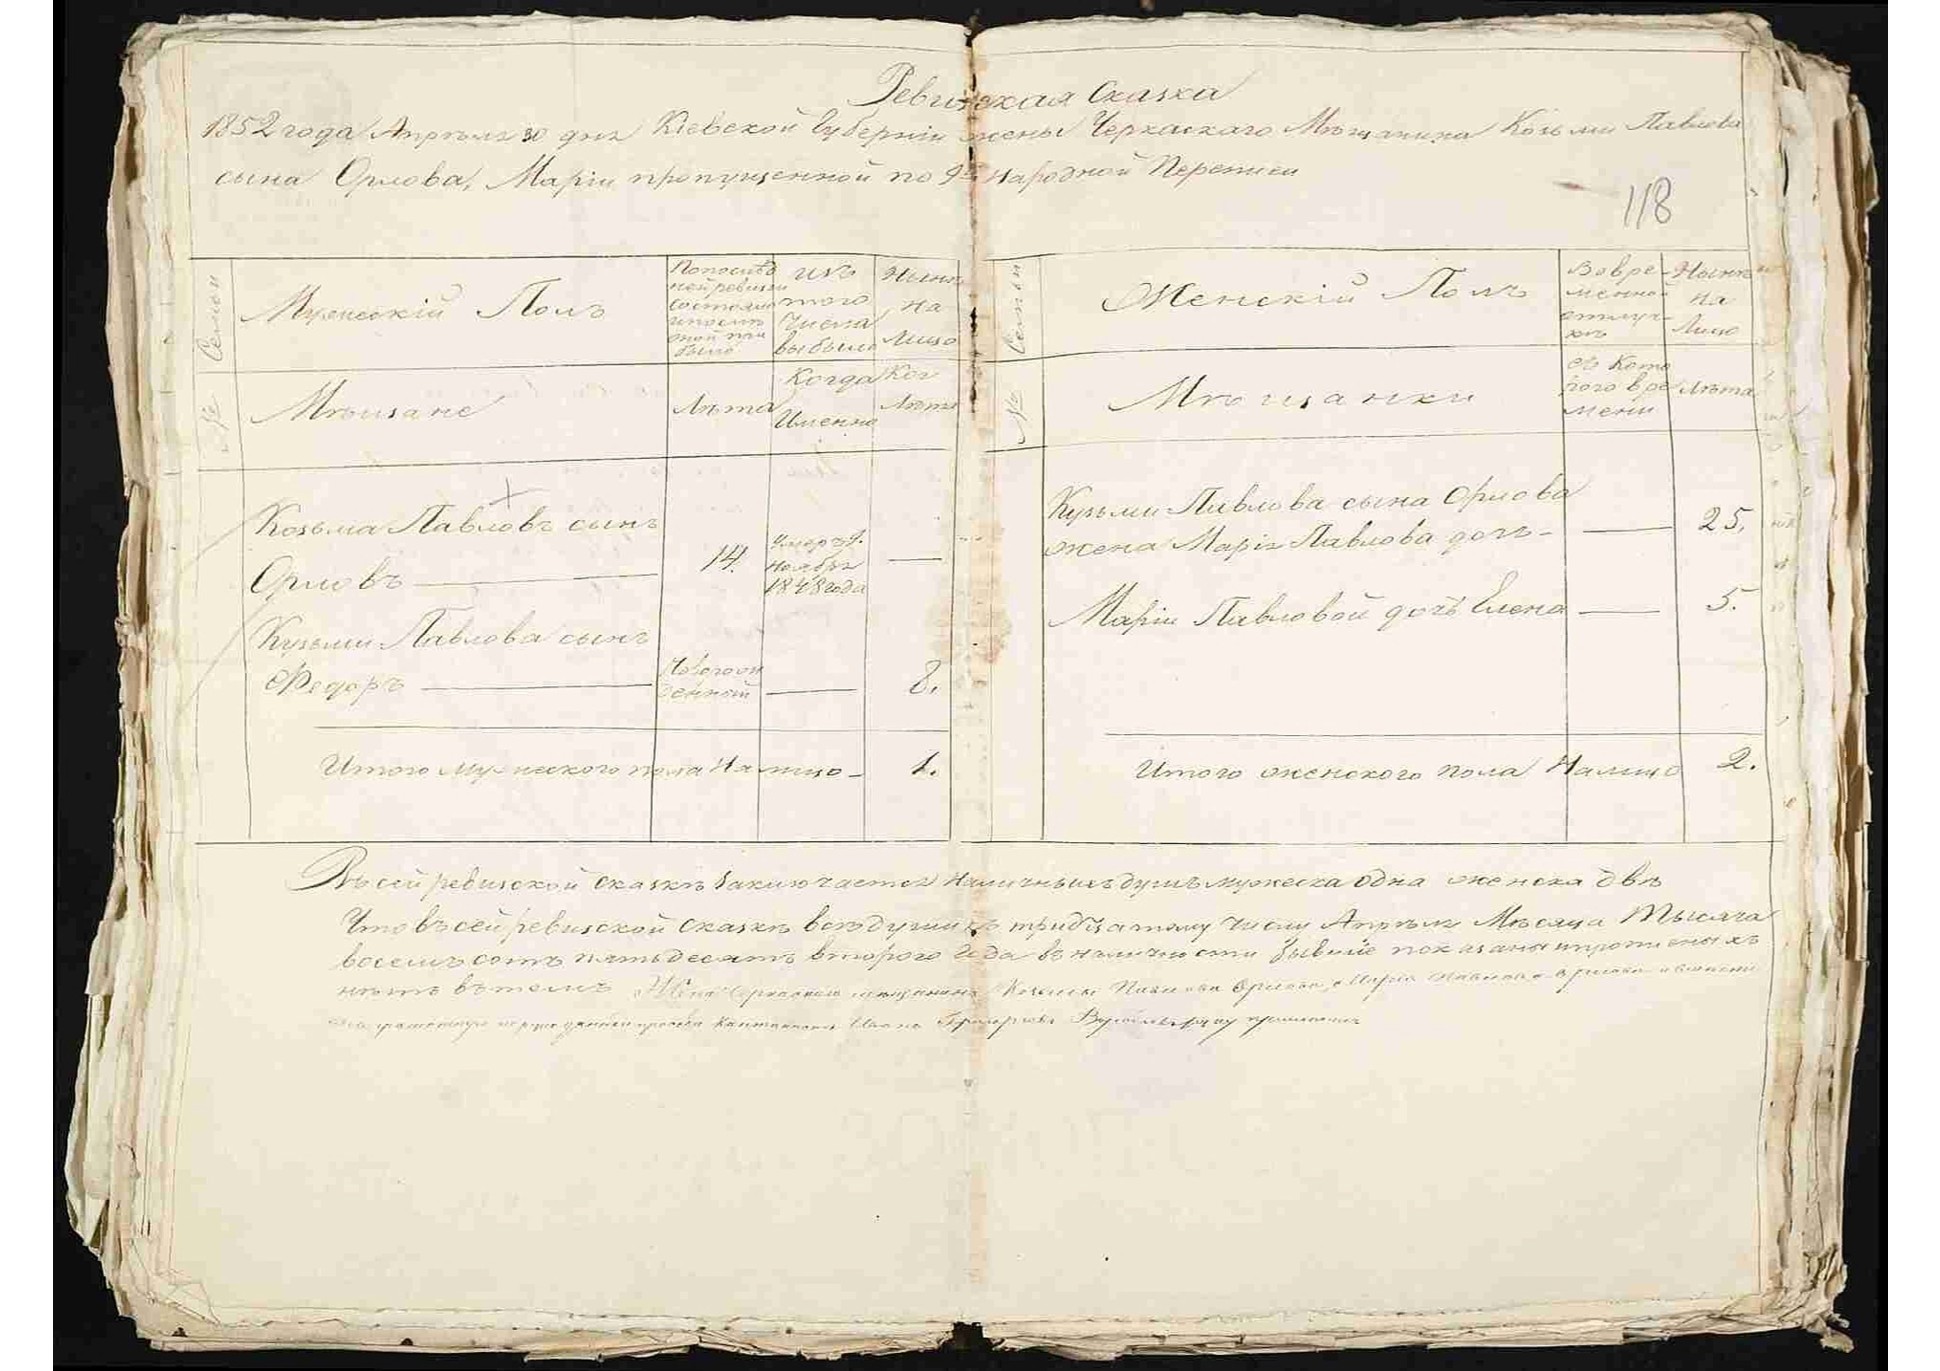 Ревизская Сказка
1852 года Апрѣля 30 дня Кіевской Губерніи жены Черкаскаго Мѣщанина Козьми Павлова
сына Орлова, Маріи пропущенной по 9й народной Переписи
118
Семьи
Мужескій Полъ
По послѣд
ней ревизіи
состояло
и послѣ
оной при
было
изъ
того
числа
выбыло
Нынѣ
на
лицо
№
Мѣщане
Лѣта
Когда
Именно
Лѣта
Козьма Павловъ сынъ
Орловъ
14.
Умеръ 9.
ноября
1848 года
Кузьми Павлова сынъ
Федоръ
Новорож
денный
8.
Итого мужескаго пола На лицо
1.
Семьи
Женскій Полъ
Во вре-
менной
отлуч-
кѣ
Нынѣ
на
Лицо
№
Мѣщанки
съ кото
рого вре
мени
Лѣта
Кузьми Павлова сына Орлова
жена Марія Павлова дочь
25.
Маріи Павловой дочь Елена
5.
Итого женского пола На лицо
2.
Въ сей ревизской сказкѣ Заключается наличныхъ душъ мужеска одна женска двѣ
Что въ сей ревизской сказкѣ всѣ души къ тридцатому числу Апрѣля Мѣсяца Тысяча
восемъ сотъ пятьдесятъ второго года въ наличности бывшіе показаны и прописныхъ
нѣтъ въ томъ Жена Черкаского мѣщанина Козьмы Павлова Орлова, Марія Павлова Орлова